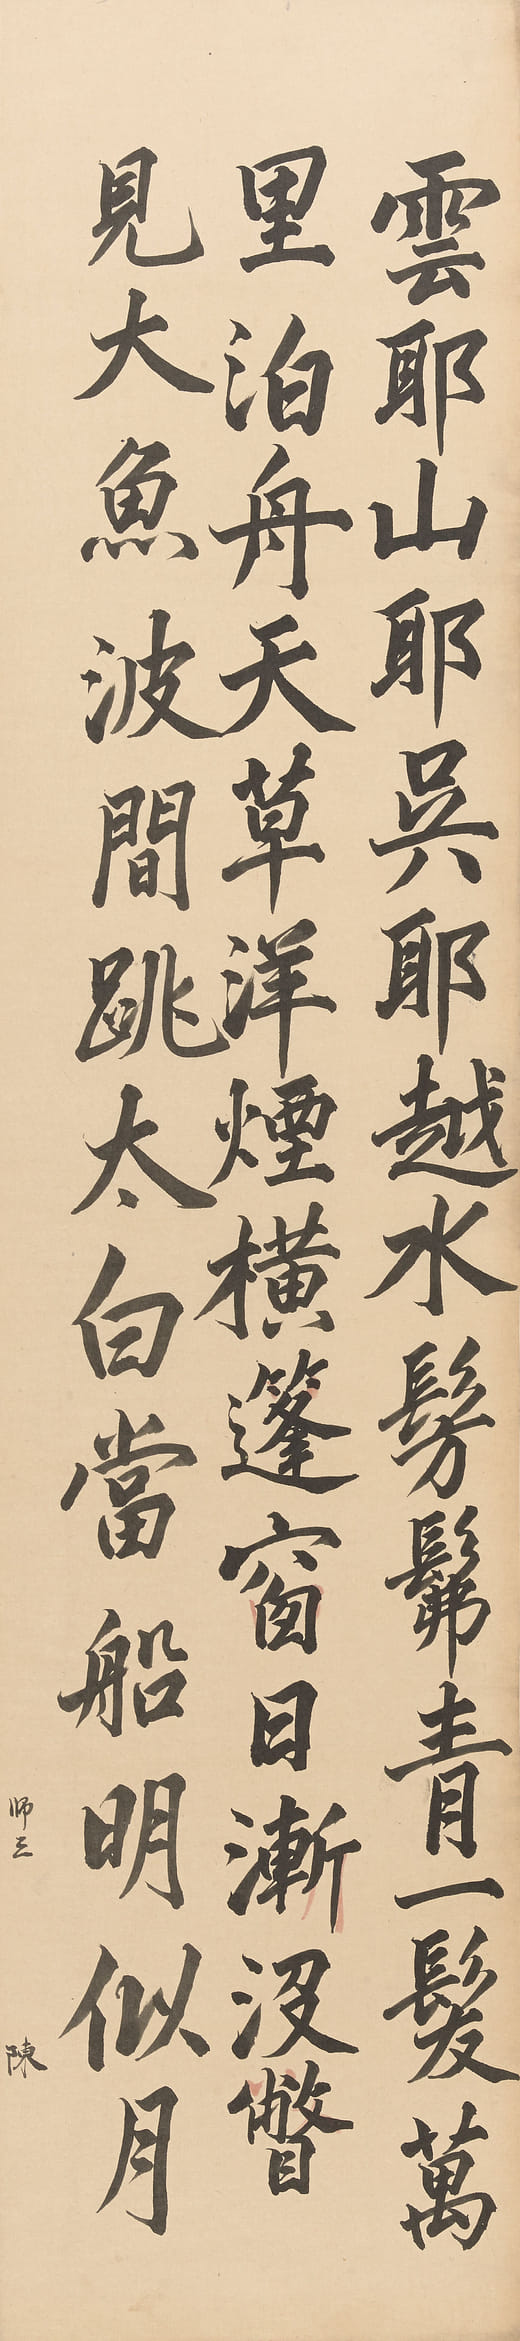 雲耶山耶吳耶越水髣髴青一髮萬
里泊舟天草洋煙橫篷窗日漸没瞥
見大魚波間跳太白當船明似月
師三
陳